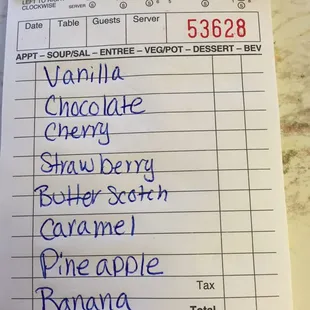 CLOCKWISE SERVER
Date Table Guests Server
53628
APPT – SOUP/SAL – ENTREE – VEG/POT – DESSERT – BEV
Vanilla
Chocolate
Cherry
Strawberry
Butter Scotch
Caramel
Pineapple
Tax
Banana
Total